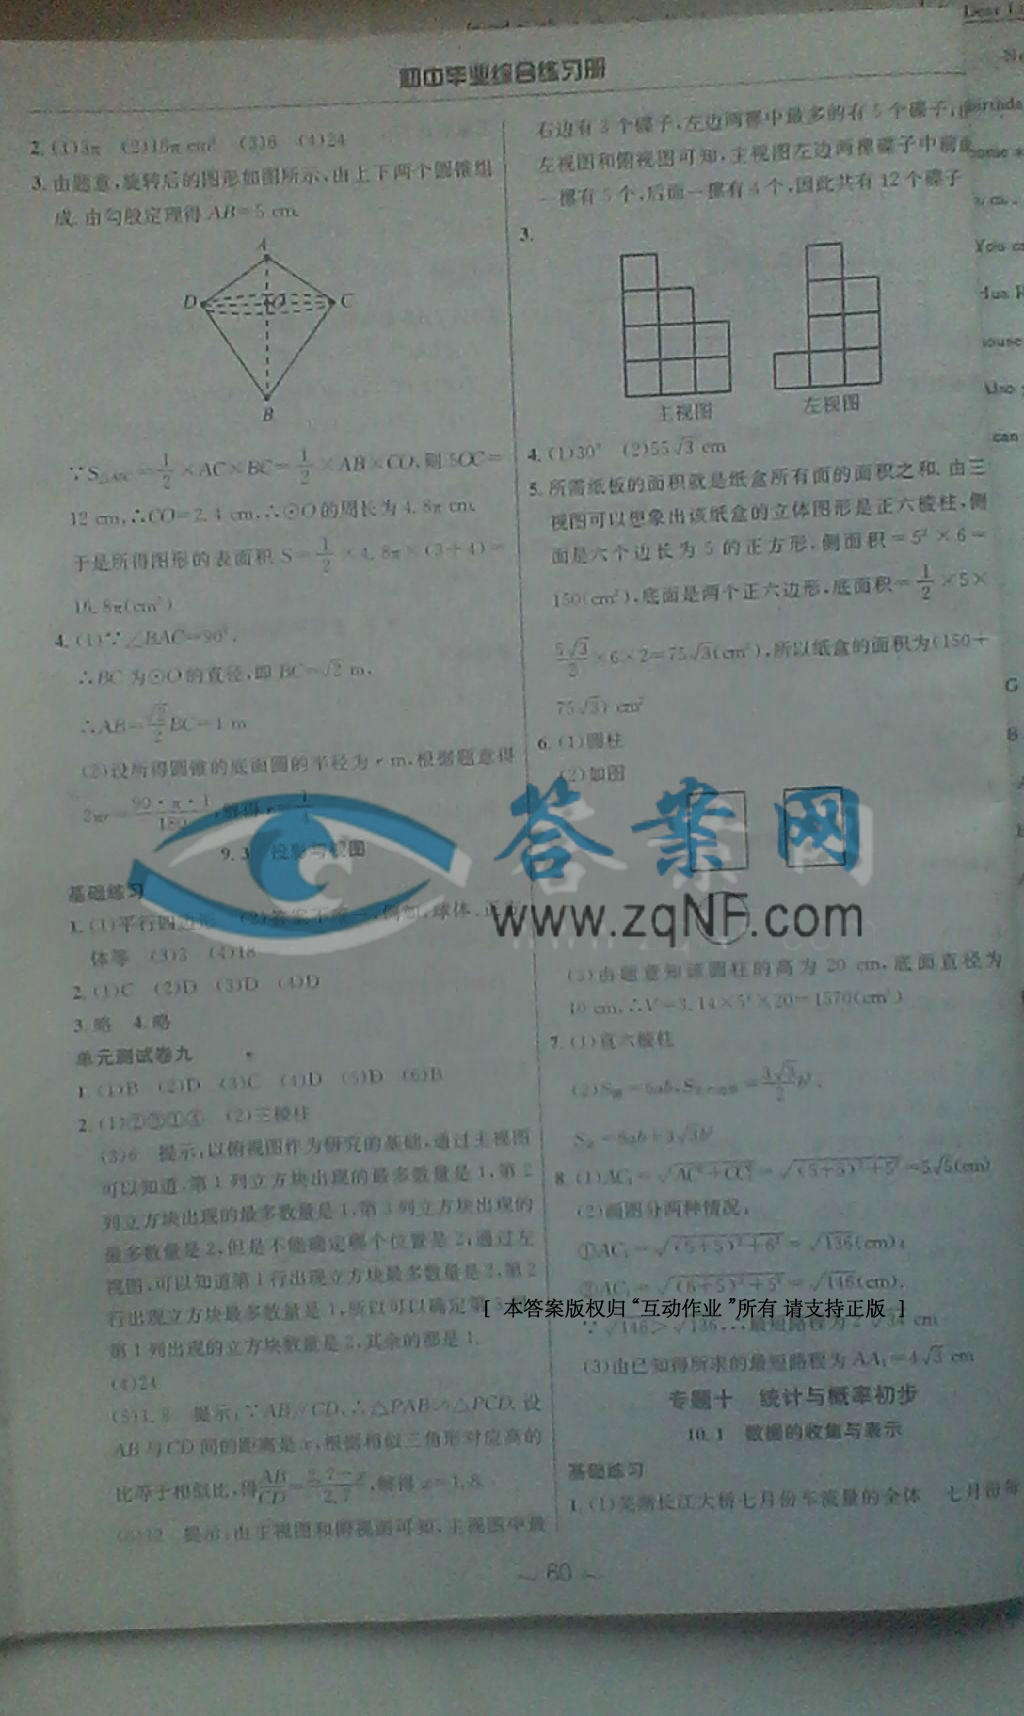 初中毕业综合练习册
2. (1)3π (2)16π cm² (3)6 (4)24
3. 由题意,旋转后的图形如图所示,由上下两个圆锥组
成. 由勾股定理得 AB=5 cm.
A
D
O
C
B
∵S△ABC=1/2×AC×BC=1/2×AB×CO,则 5OC=
12 cm,∴CO=2.4 cm,∴⊙O的周长为 4.8π cm.
于是所得图形的表面积 S=1/2×4.8π×(3+4)=
16.8π(cm²)
4. (1)∵∠BAC=90°,
∴BC为⊙O的直径,即 BC=√2 m,
∴AB=√2/2BC=1 m
(2)设所得圆锥的底面圆的半径为 r m,根据题意得
2πr=90·π·1/180,解得 r=1/4
9.3 投影与视图
基础练习
1. (1)平行四边形 (2)答案不唯一,例如,球体、正方
体等 (3)3 (4)18
2. (1)C (2)D (3)D (4)D
3. 略 4. 略
单元测试卷九
1. (1)B (2)D (3)C (4)D (5)D (6)B
2. (1)②③①④ (2)三棱柱
(3)6 提示:以俯视图作为研究的基础,通过主视图
可以知道,第1列立方块出现的最多数量是1,第2
列立方块出现的最多数量是1,第3列立方块出现的
最多数量是2,但是不能确定哪个位置是2;通过左
视图,可以知道第1行出现立方块最多数量是2,第2
行出现立方块最多数量是1,所以可以确定第
第1列出现的立方块数量是2,其余的都是1.
(4)24
(5)1.8 提示:∵AB∥CD,∴△PAB∽△PCD. 设
AB与CD间的距离是x,根据相似三角形对应高的
比等于相似比,得AB/CD=2.7-x/2.7,解得 x=1.8.
(6)12 提示:由主视图和俯视图可知,主视图中最
右边有3个碟子,左边两摞中最多的有5个碟子;由
左视图和俯视图可知,主视图左边两摞碟子中前面
一摞有5个,后面一摞有4个,因此共有12个碟子
3.
主视图 左视图
4. (1)30° (2)55√3 cm
5. 所需纸板的面积就是纸盒所有面的面积之和. 由三
视图可以想象出该纸盒的立体图形是正六棱柱,侧
面是六个边长为5的正方形. 侧面积=5²×6=
150(cm²),底面是两个正六边形,底面积=1/2×5×
5√3/2×6×2=75√3(cm²),所以纸盒的面积为(150+
75√3) cm²
6. (1)圆柱
(2)如图
(3)由题意知该圆柱的高为20 cm,底面直径为
10 cm,∴V=3.14×5²×20=1570(cm³)
7. (1)直六棱柱
(2)S侧=6ab,S=3√3/2b²,
S全=6ab+3√3b²
8. (1)AC₁=√AC²+CC₁²=√(5+5)²+5²=5√5(cm)
(2)画图分两种情况:
①AC₁=√(5+5)²+6²=√136(cm);
②AC₁=√(6+5)²+5²=√146(cm).
∵√146>√136,∴最短路程为2√34 cm
(3)由已知得所求的最短路程为AA₁=4√3 cm
专题十 统计与概率初步
10.1 数据的收集与表示
基础练习
1. (1)芜湖长江大桥七月份车流量的全体 七月份每
~ 60 ~
答案网
www.zqNF.com
[ 本答案版权归“互动作业”所有 请支持正版 ]
Dear Li
birthda
You c
Hua R
house
Also
can
G
B